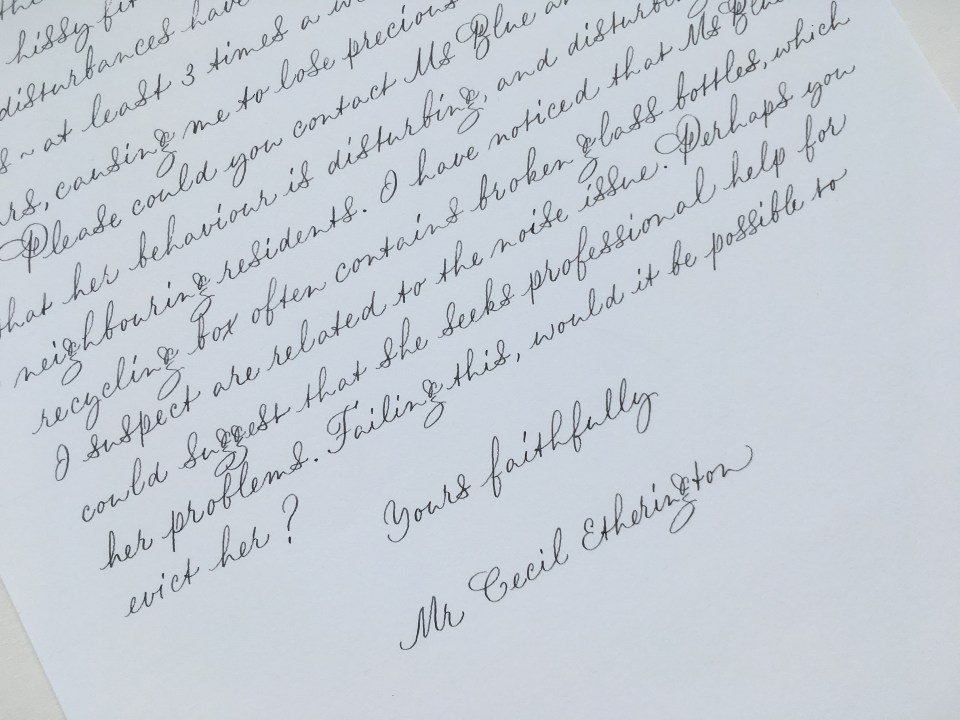 the
hissy fit
disturbances have
s ~ at least 3 times a
rs, causing me to lose precious
Please could you contact Ms Blue
that her behaviour is disturbing, and disturbing
neighbouring residents. I have noticed that Ms Blue
recycling box often contains broken glass bottles, which
I suspect are related to the noise issue. Perhaps you
could suggest that she seeks professional help for
her problems. Failing this, would it be possible to
evict her?
Yours faithfully
Mr Cecil Etherington